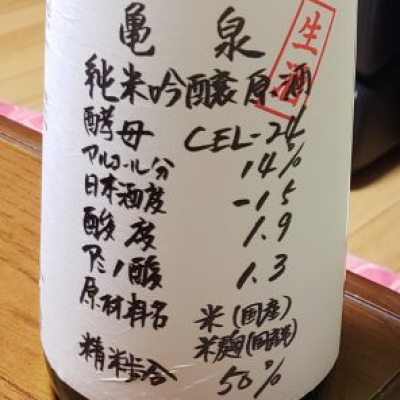 亀泉
生酒
純米吟醸原酒
酵母 CEL-24
アルコール分 14%
日本酒度 -15
酸度 1.9
アミノ酸 1.3
原材料名 米(国産)
米麹(国産米)
精米歩合 50%